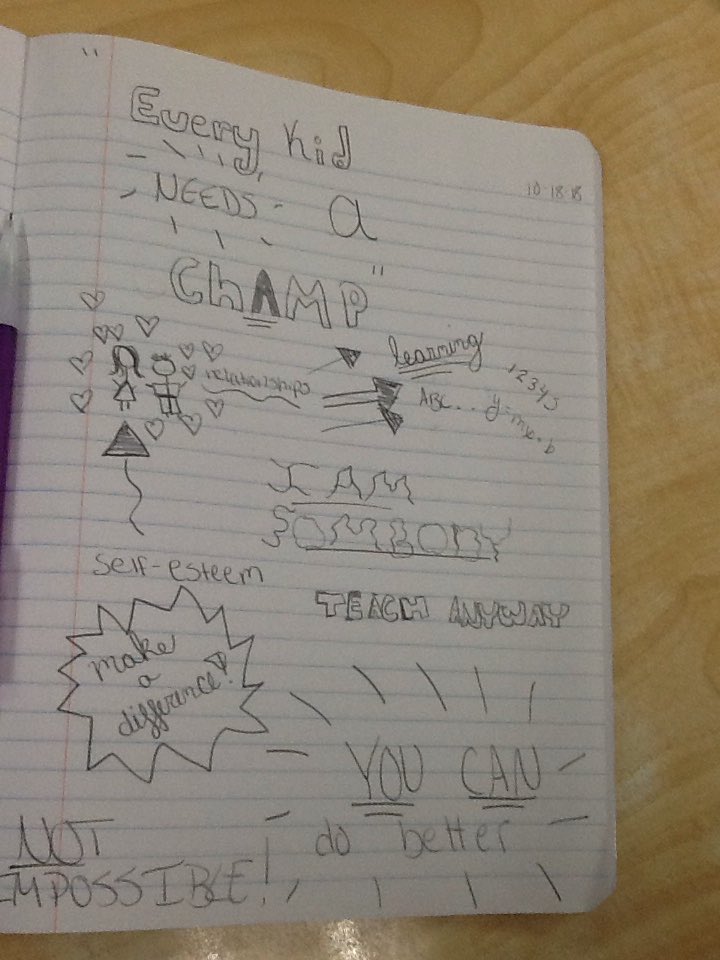 "Every Kid
10-18-18
NEEDS a
ChAMP"
relationships
learning
12345
ABC... y=mx+b
I AM
SOMBODY
self-esteem
TEACH ANYWAY
make
a
difference!
YOU CAN
do better
NOT
IMPOSSIBLE!